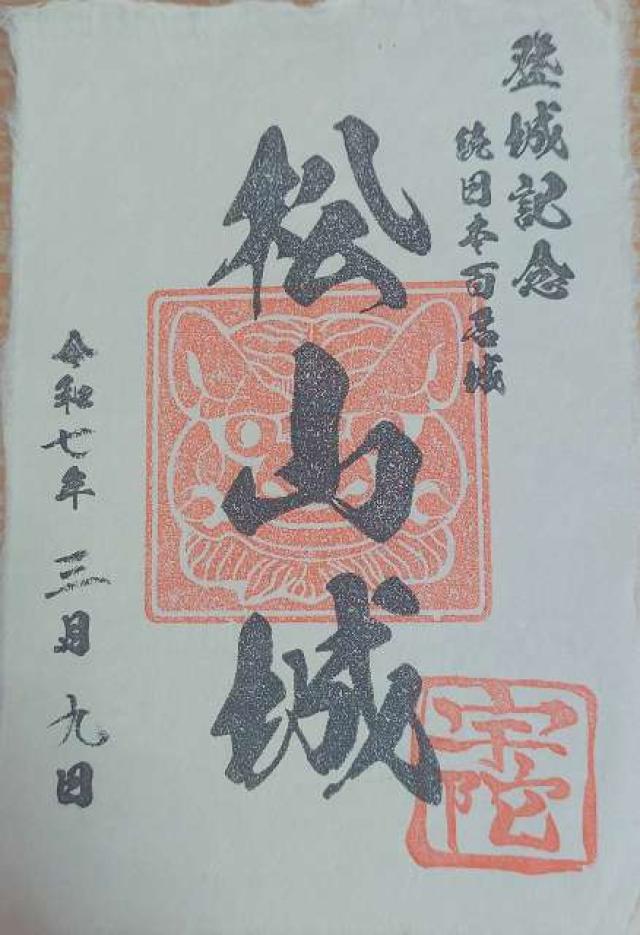 登城記念
続日本百名城
松山城
宇陀
令和七年 三月 九日